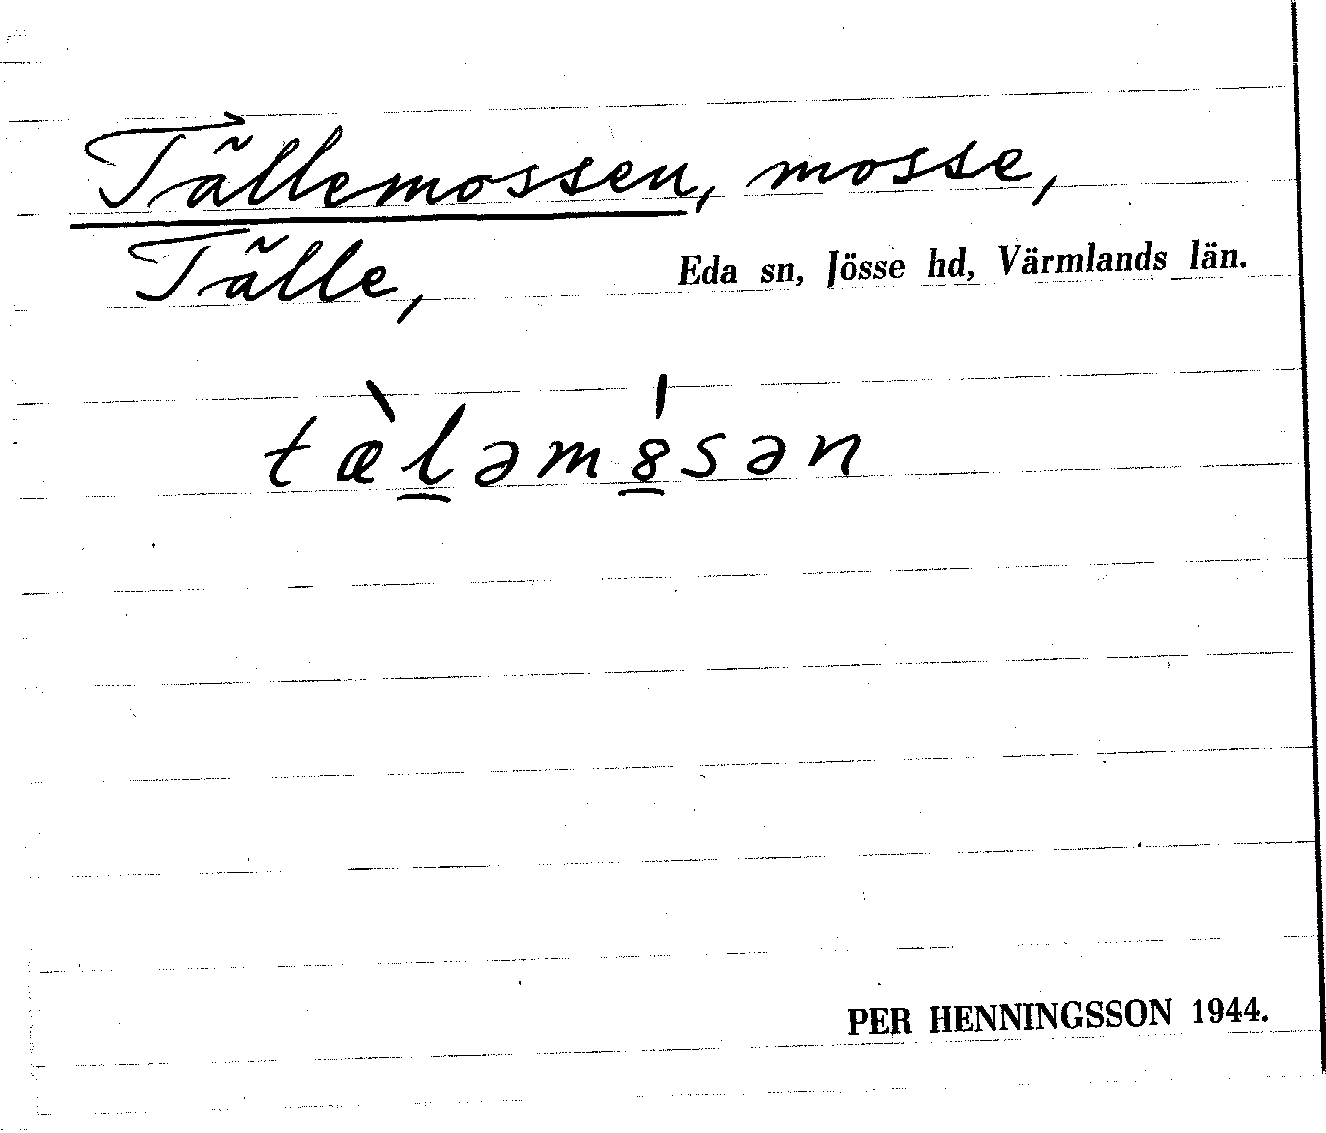 Tällemossen, mosse,
Tälle, Eda sn, Jösse hd, Värmlands län.
tæ̀l̲əm8̲́sən
PER HENNINGSSON 1944.